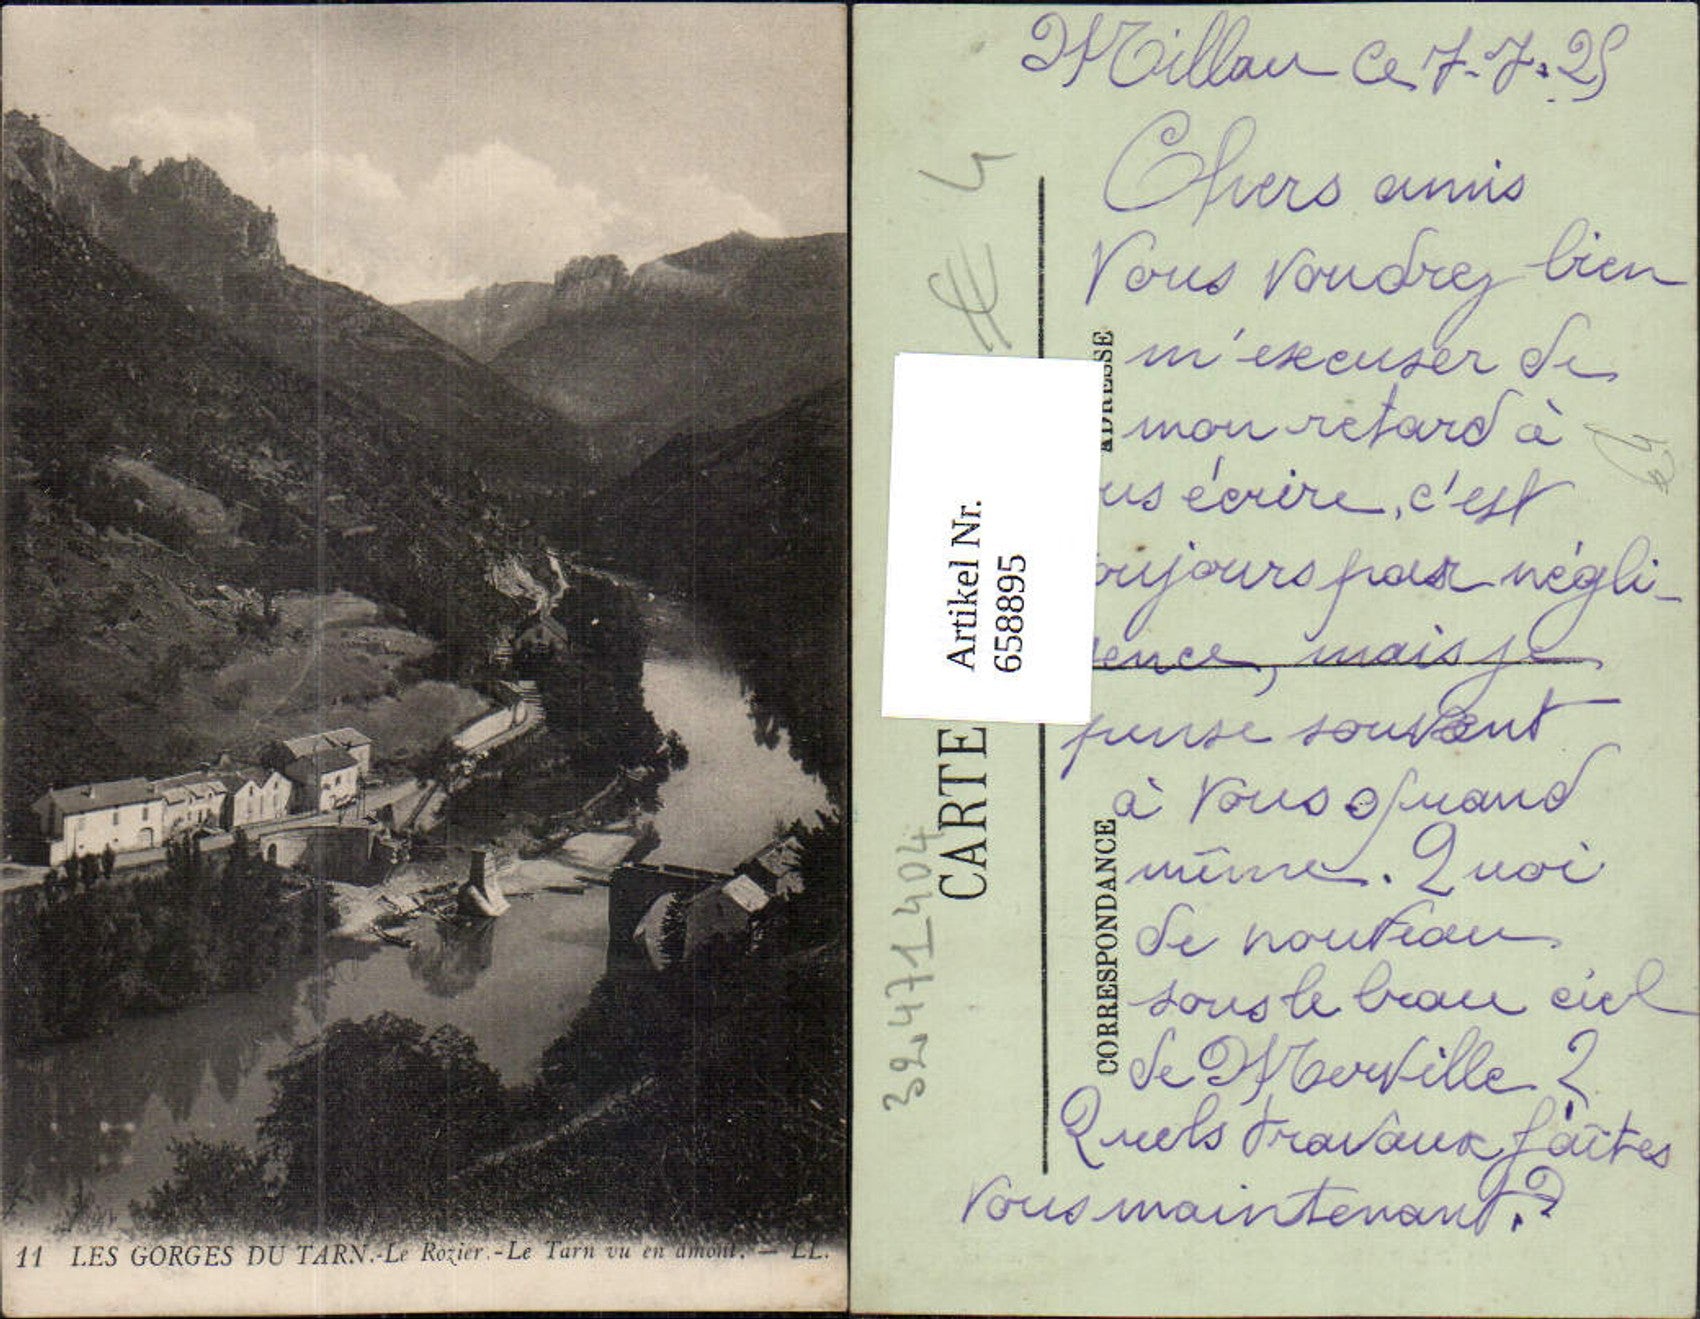 11 LES GORGES DU TARN.-Le Rozier.-Le Tarn vu en amont. — LL.
Millau ce 7-7.25
Chers amis
Vous voudrez bien
m'excuser de
mon retard à
ous écrire, c'est
oujours par négli-
gence, mais je
pense souvent
à vous quand
même. Quoi
de nouveau
sous le beau ciel
de Merville ?
Quels travaux faites
vous maintenant ?
ADRESSE
CORRESPONDANCE
CARTE
Artikel Nr.
658895
392471_404